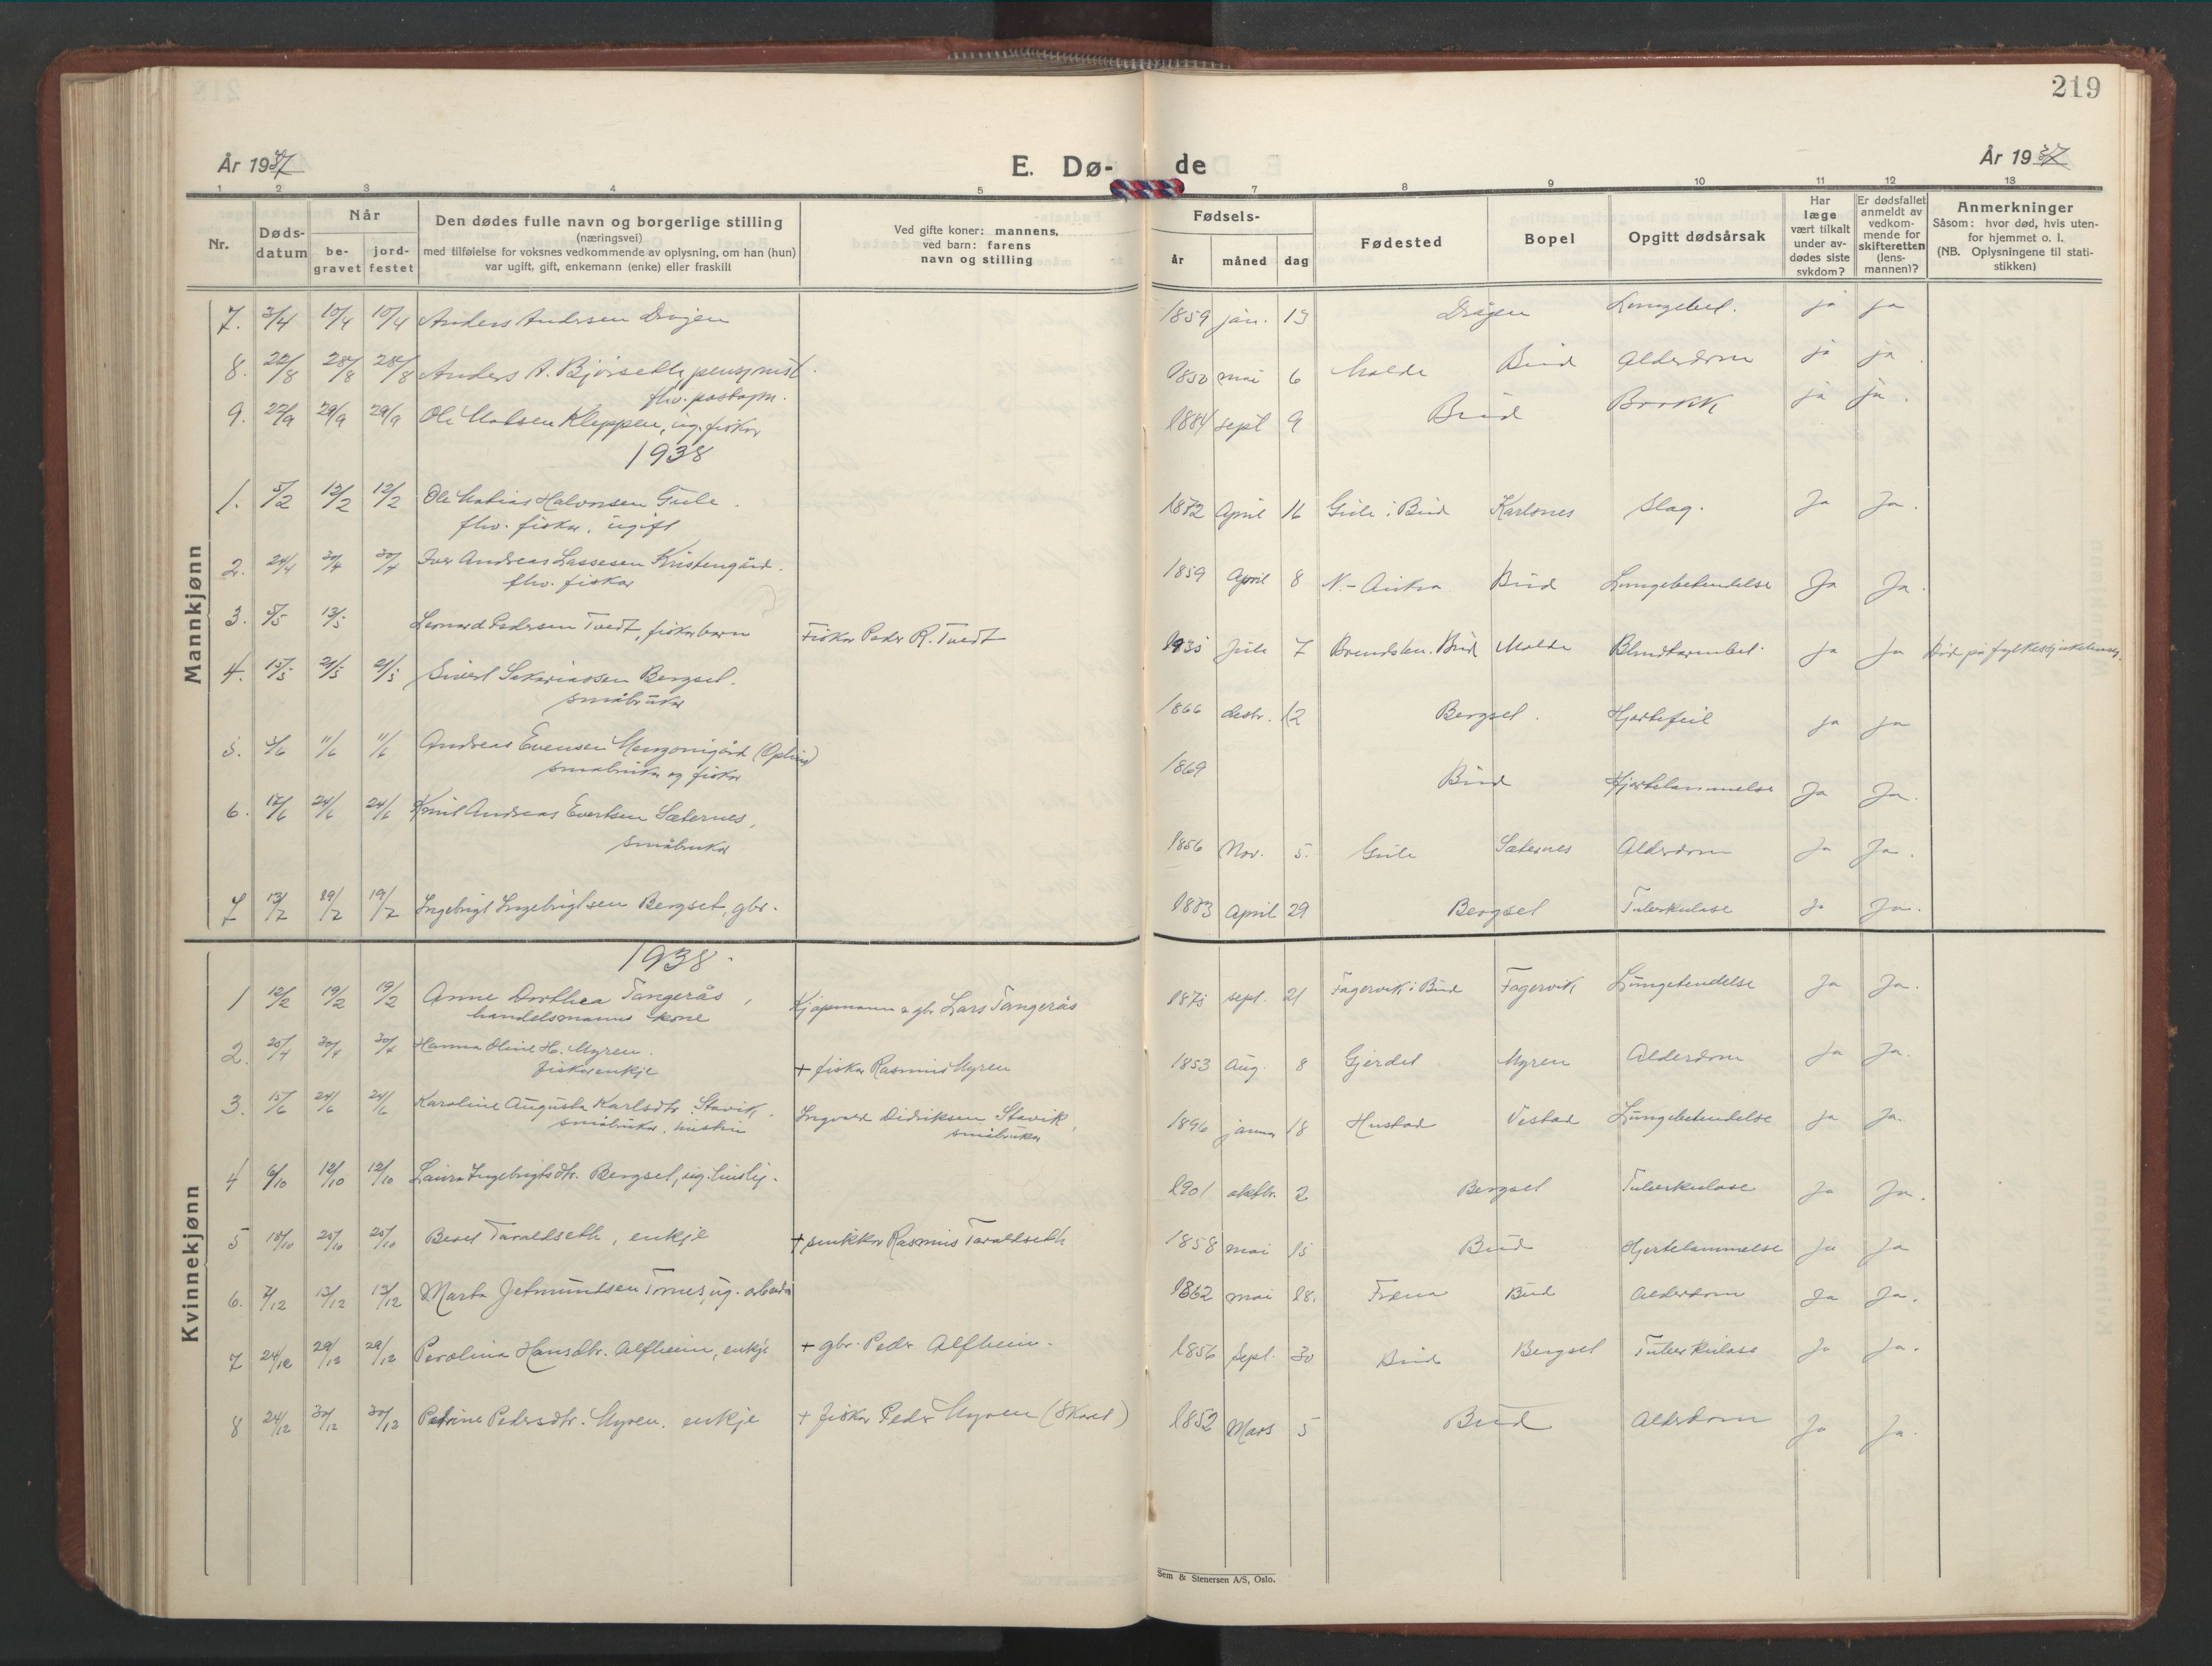 219
År 1937
E. Dø-
de
År 1937
1 2 3 4 5 7 8 9 10 11 12 13
Nr.
Døds-
datum
Når
be-
gravet
jord-
festet
Den dødes fulle navn og borgerlige stilling
(næringsvei)
med tilføielse for voksnes vedkommende av oplysning, om han (hun)
var ugift, gift, enkemann (enke) eller fraskilt
Ved gifte koner: mannens,
ved barn: farens
navn og stilling
Fødsels-
år måned dag
Fødested
Bopel
Opgitt dødsårsak
Har
læge
vært tilkalt
under av-
dødes siste
sykdom?
Er dødsfallet
anmeldt av
vedkom-
mende for
skifteretten
(lens-
mannen)?
Anmerkninger
Såsom: hvor død, hvis uten-
for hjemmet o. l.
(NB. Oplysningene til stati-
stikken)
Mannkjønn
7. 3/4 10/4 10/4 Anders Andersen Drågen 1859 jan. 13 Drågen Lungebet. ja ja
8. 22/8 28/8 28/8 Anders A. Bjørseth, pensjonist 1850 mai 6 Molde Bud Alderdom ja ja.
fhv. postopn.
9. 22/9 29/9 29/9 Ole Madsen Kleppen, ug. fisker 1884 sept 9 Bud Brokk ja ja.
1938
1. 5/2 12/2 12/2 Ole Matias Halvorsen Gule. 1872 April 16 Gule i Bud Karlsnes Slag. Ja Ja.
fhv. fisker, ugift
2. 24/4 30/4 30/4 Iver Andreas Lassesen Kristengård. 1859 April 8 N.-Aukra Bud Lungebetendelse Ja Ja.
fhv. fisker
3. 5/5 13/5 Leonard Pedersen Tvedt, fiskerbarn Fisker Peder R. Tvedt 1935 Juli 7 Bud Molde Blindtarmbet. Ja Ja Død på fylkessjukehuset.
4. 15/5 21/5 21/5 Sivert Sakariassen Bergset. 1866 desbr. 12 Bergset. Hjertefeil ja ja
småbruker
5. 5/6 11/6 11/6 Andreas Evensen 1869 Bud Hjertelammelse Ja Ja.
småbruker og fisker
6. 17/6 24/6 24/6 Knut Andreas Evertsen Sæternes, 1856 Nov. 5. Gule Sæternes Alderdom Ja Ja.
småbruker
7 13/7 19/7 19/7 Ingebrigt Ingebrigtsen Bergset, gbr. 1883 April 29 Bergset Tuberkulose Ja Ja.
1938.
Kvinnekjønn
1 12/2 19/2 19/2 Anne Dorthea Tangerås, Kjøpmann & gbr Lars Tangerås 1875 sept. 21 Fagervik i Bud Fagervik Lungetendelse Ja Ja.
handelsmanns kone
2. 25/4 30/4 30/4 Hanna Oline H. Myren. + fisker Rasmus Myren 1853 Aug. 8 Gjerdet Myren Alderdom Ja Ja.
fiskerenkje
3. 15/6 24/6 24/6 Karoline Augusta Karlsdtr. Stavik. Ingvald Didriksen Stavik, 1896 januar 18 Hustad Vestad Lungebetendelse Ja Ja.
småbruker. hustru småbruker
4 6/10 12/10 12/10 Laura Ingebrigtsdtr. Bergset, ug. huslig. 1901 oktbr. 2 Bergset Tuberkulose Ja Ja.
5 18/10 25/10 25/10 Beret Taraldseth, enkje + snikker Rasmus Taraldseth 1858 mai 15 Bud Hjertelammelse Ja Ja
6. 7/12 13/12 13/12 Marta Jetmundsen Tornes, ug. 1862 mai 18. Fræna Bud Alderdom Ja Ja.
7 24/12 29/12 29/12 Perolina Hansdtr. Alfheim, enkje + gbr. Peder Alfheim. 1856 Sept. 30 Bud Bergset Tuberkulose Ja Ja.
8 24/12 30/12 30/12 Petrine Pedersdtr. Myren. enkje + fisker Peder Myren (Skaret) 1852 Mars 5 Bud Alderdom Ja Ja.
Sem & Stenersen A/S, Oslo.